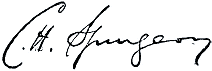 C. H. Spurgeon